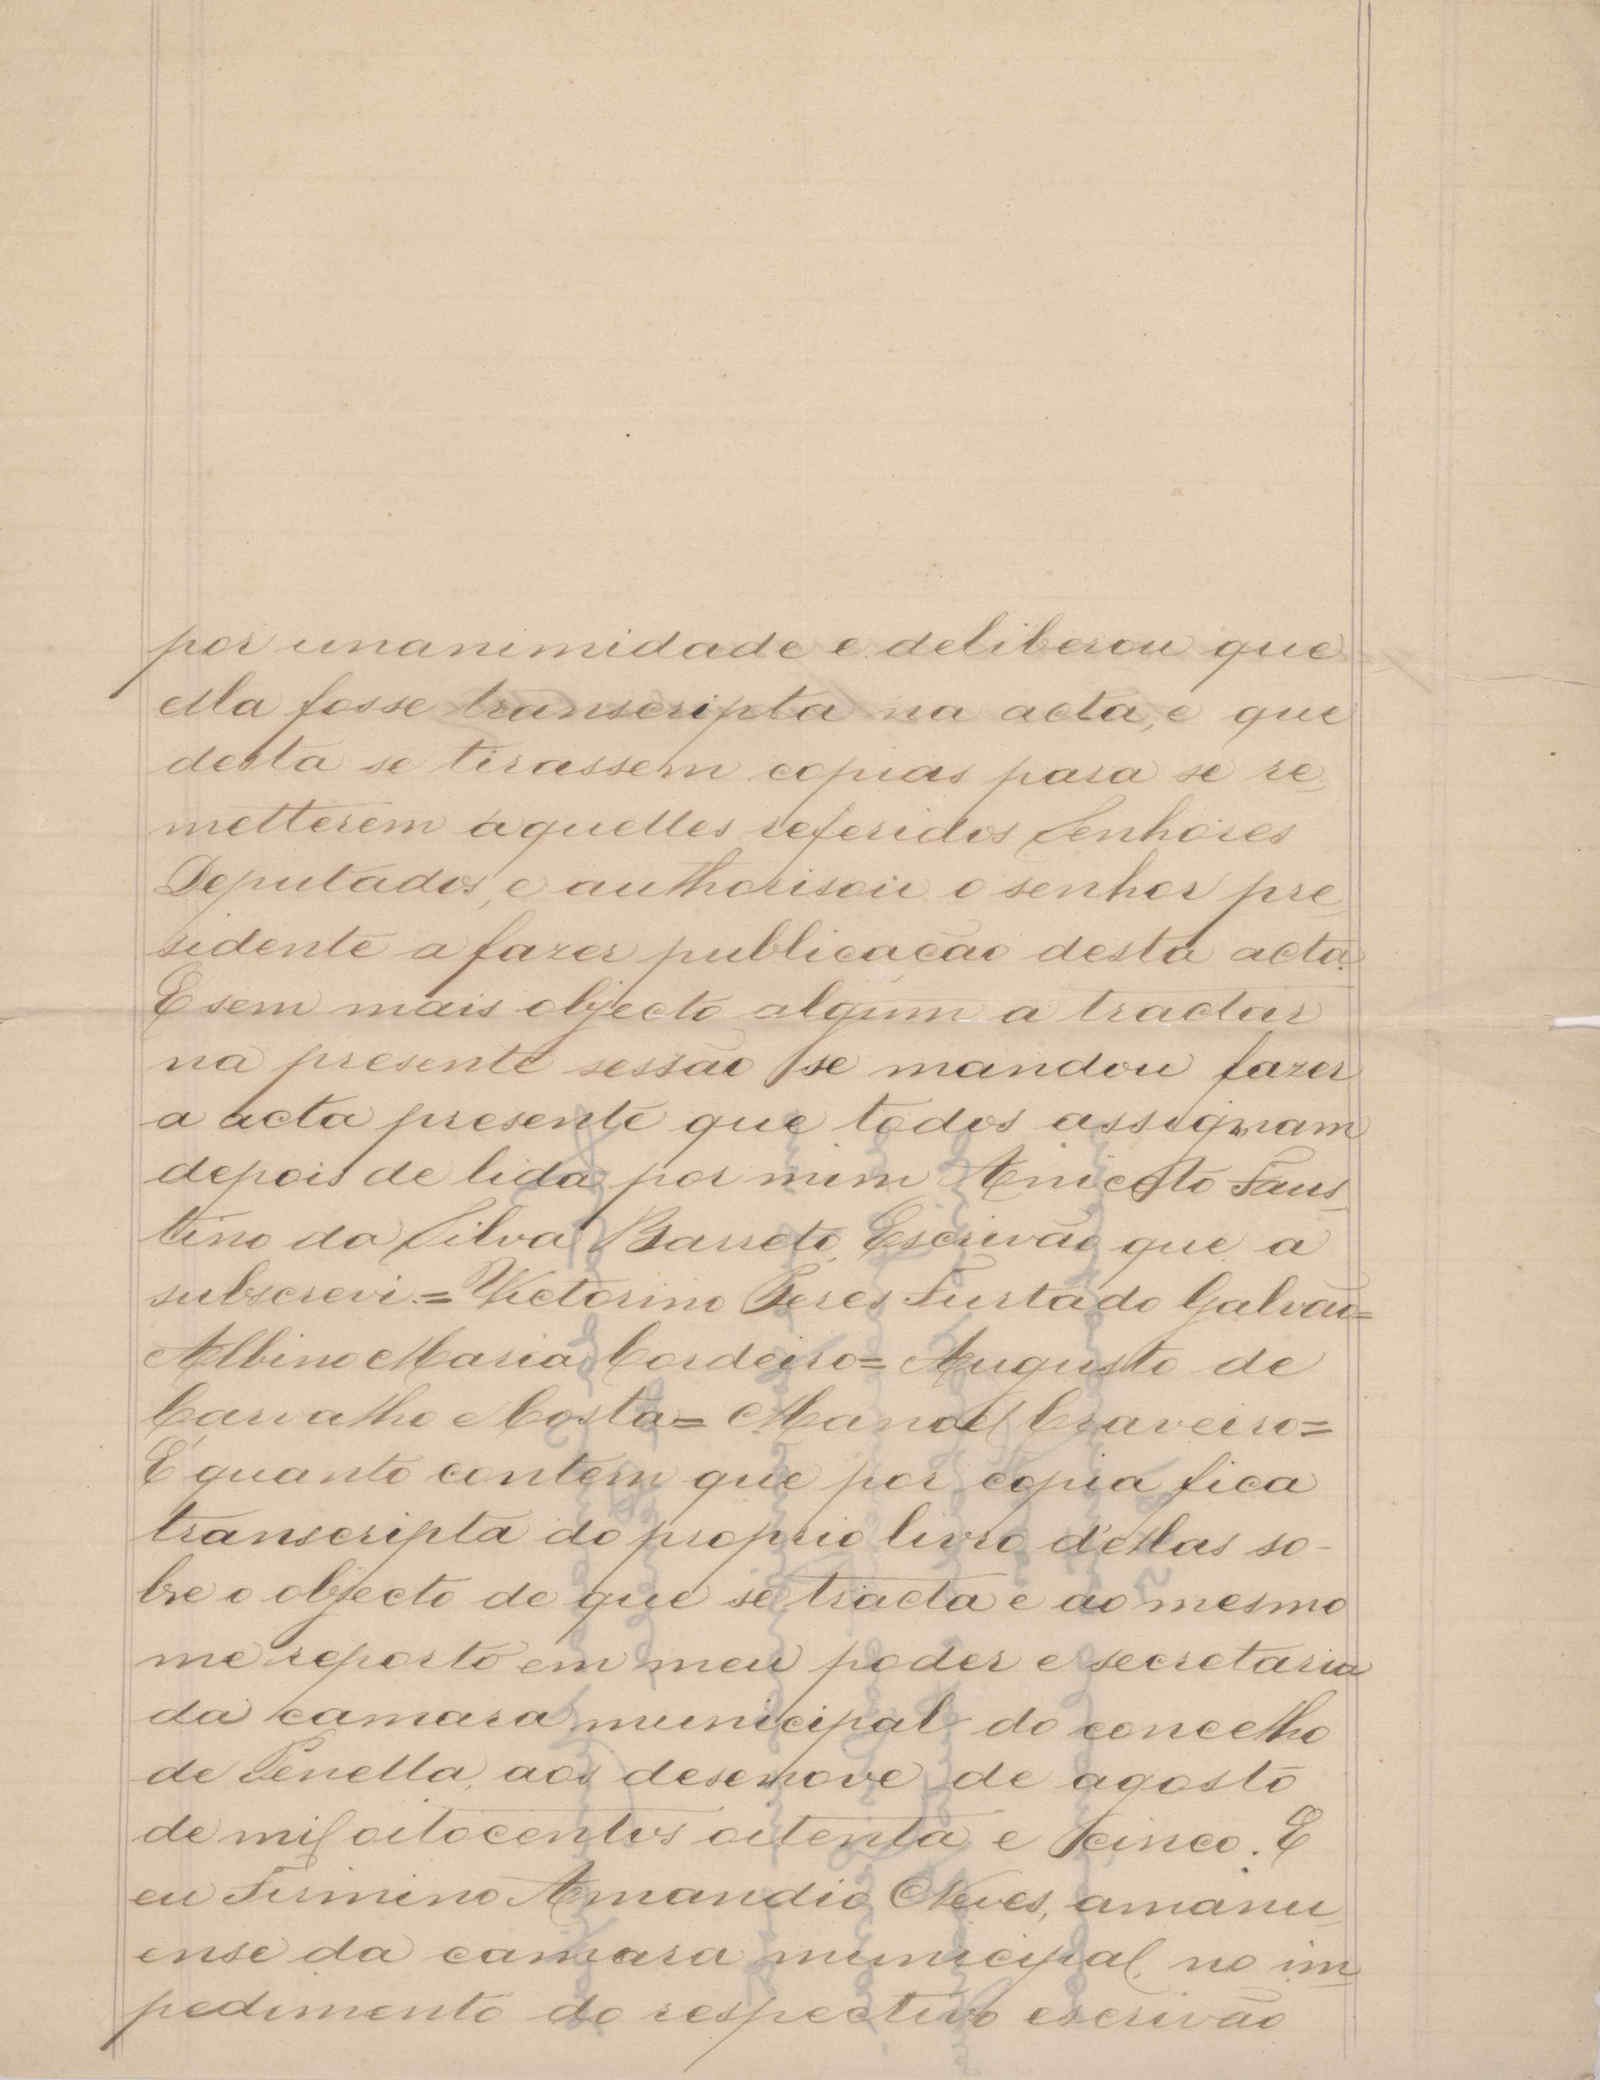 por unanimidade e deliberou que
ella fosse transcripta na acta, e que
desta se tirassem copias para se re-
metterem áquelles referidos Senhores
Deputados, e authorisou o senhor pre-
sidente a fazer publicação desta acta.
E sem mais objecto algum a tractar
na presente sessão se mandou fazer
a acta presente que todos assignam
depois de lida por mim Aniceto Faus-
tino da Silva Barreto, Escrivão que a
subscrevi. = Victorino Peres Furtado Galvão =
Albino Maria Cordeiro = Augusto de
Carvalho e Costa = Manoel Craveiro =
E quanto contém que por copia fica
transcripta do proprio livro d'ellas so-
bre o objecto de que se tracta e ao mesmo
me reporto em meu poder e secretaria
da camara municipal do concelho
de Penella, aos desenove de agosto
de mil oitocentos oitenta e cinco. E
eu Firmino Amandio Neves, amanu-
ense da camara municipal, no im-
pedimento do respectivo escrivão